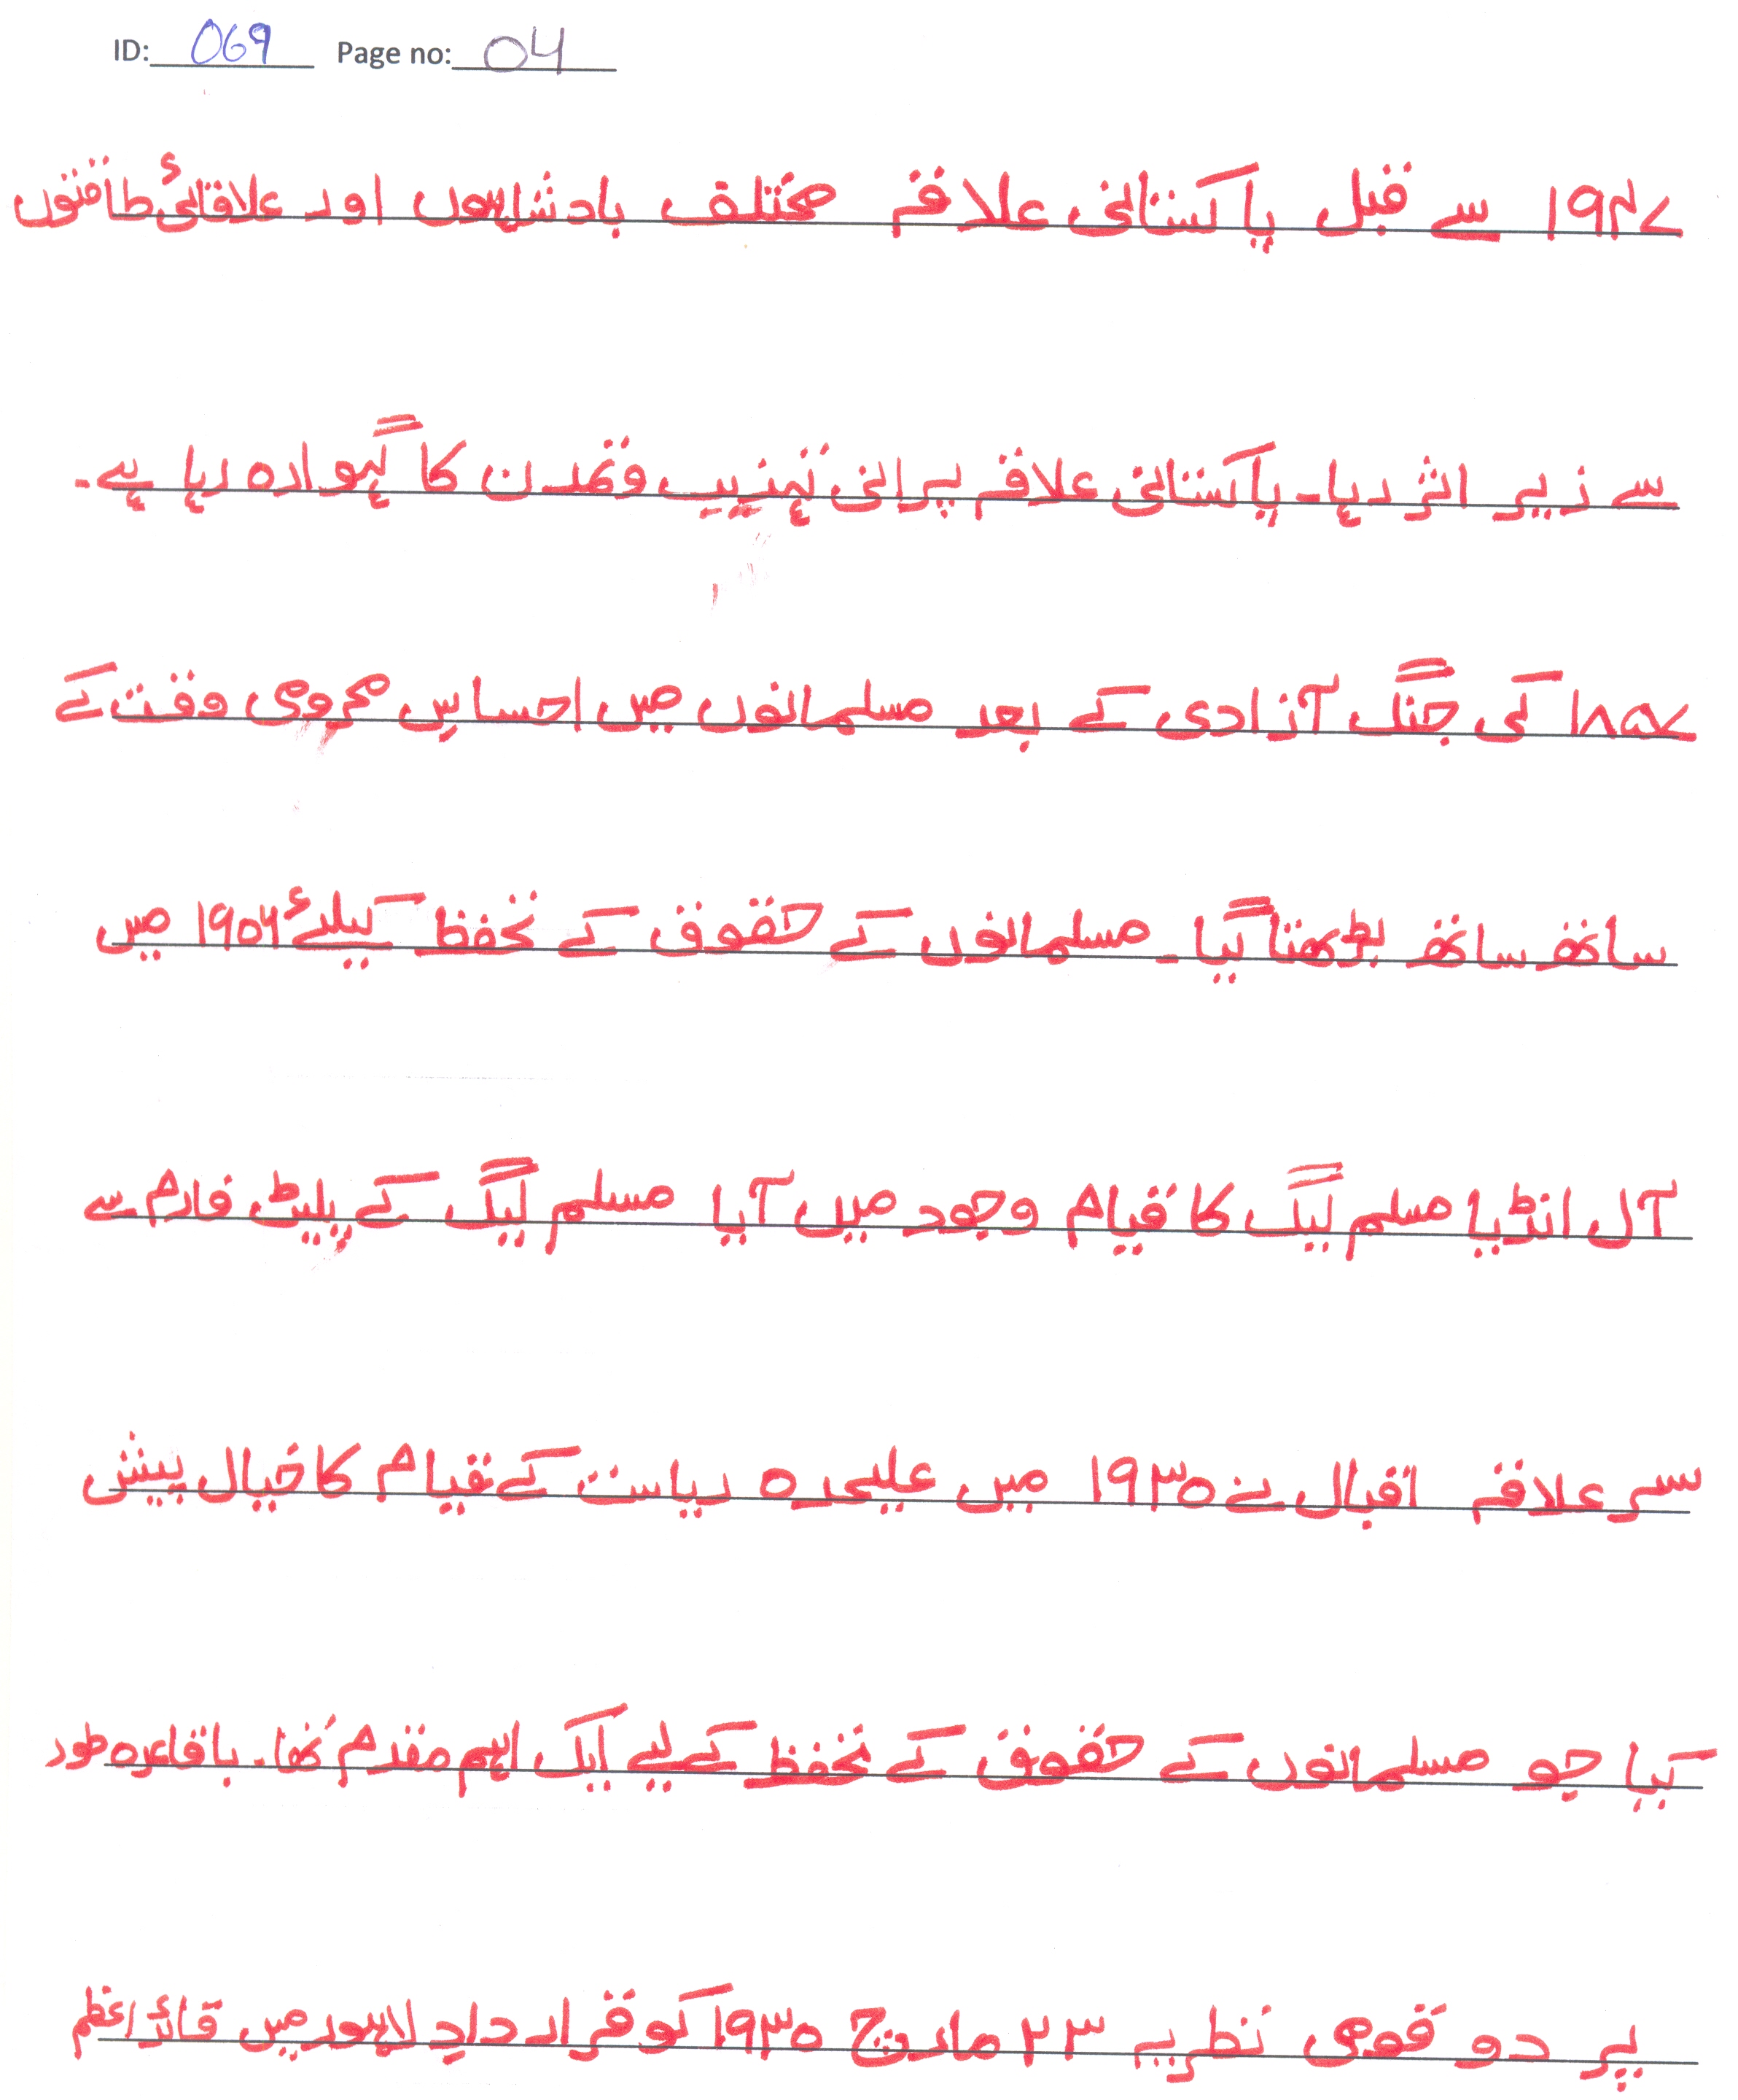 ID: 069 Page no: 04
۱۹۴۷ سے قبل پاکستانی علاقہ مختلف بادشاہوں اور علاقائی طاقتوں
سے زیر اثر رہا۔ پاکستانی علاقہ پرانی تہذیب و تمدن کا گہوارہ رہا ہے۔
۱۸۵۷ کی جنگ آزادی کے بعد مسلمانوں میں احساسِ محرومی وقت کے
ساتھ ساتھ بڑھتا گیا۔ مسلمانوں کے حقوق کے تحفظ کیلئے ۱۹۰۶ میں
آل انڈیا مسلم لیگ کا قیام وجود میں آیا مسلم لیگ کے پلیٹ فارم سے
سر علاقہ اقبال نے ۱۹۳۰ میں علیحدہ ریاست کے قیام کا خیال پیش
کیا جو مسلمانوں کے حقوق کے تحفظ کے لیے ایک اہم مقدم تھا۔ باقاعدہ طور
پر دو قومی نظریہ ۲۳ مارچ ۱۹۳۰ کو قرار داد لاہور میں قائد اعظم